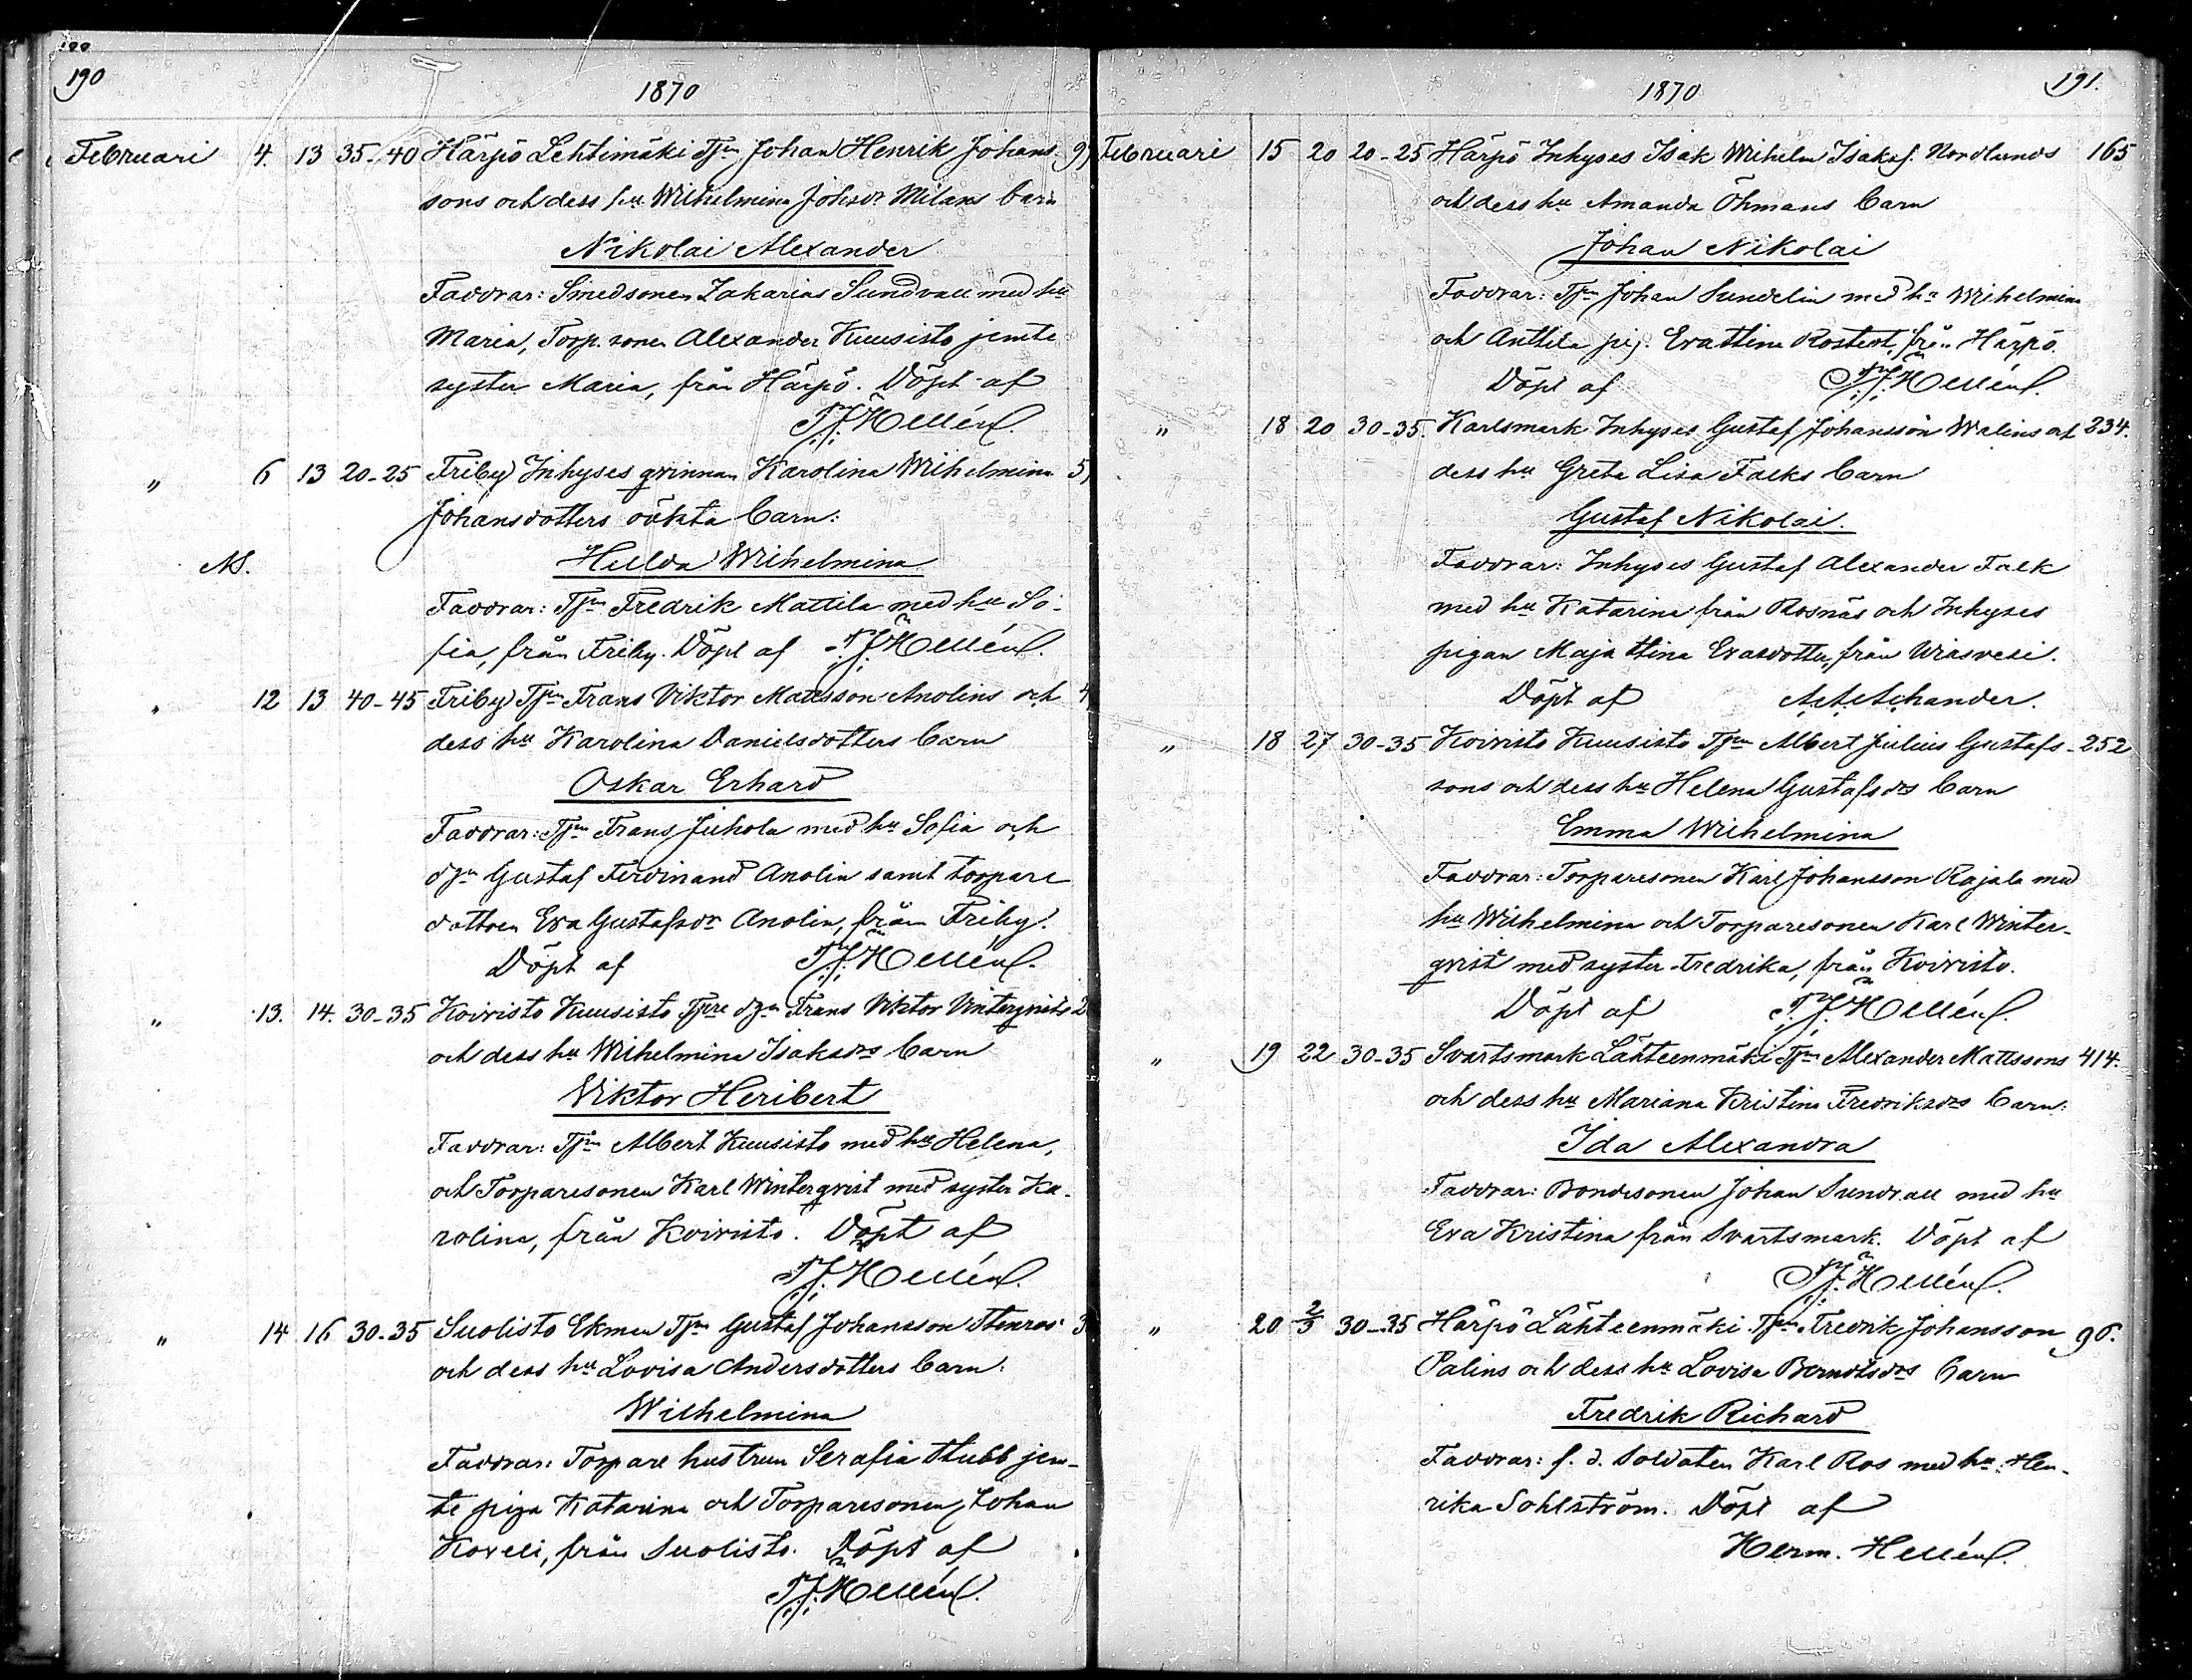 190
1870
Februari 4. 13 35-40 Härpö Lehtimäki Tjn Johan Henrik Johans-
sons och dess hu Wilhelmina Johsdr Milans barn
Nikolai Alexander
Faddrar: Smedsonen Zakarias Sundvall med hu
Maria, Torp. sonen Alexander Kuusisto jemte
syster Maria, från Härpö. Döpt af
Hellén.
" 6 13 20-25 Friby Inhyses qvinnan Karolina Wilhelmina 5
Johansdotters oäkta barn:
Hilda Wilhelmina
Faddrar: Tjn Fredrik Mattila med hu So-
fia, från Friby. Döpt af Hellén.
" 12 13 40-45 Friby Tjn Frans Viktor Mattsson Anolins och 4
dess hu Karolina Danielsdotters barn
Oskar Erhard
Faddrar: Tjn Frans Juhola med hu Sofia och
dgn Gustaf Ferdinand Anolin samt torpare
dottren Eva Gustafsdr Anolin, från Friby.
Döpt af Hellén.
" 13. 14. 30-35 Koivisto Kuusisto Tpre dgn Frans Viktor Vinterqvists 2
och dess hu Wilhelmina Isaksdrs barn
Viktor Heribert
Faddrar: Tjn Albert Kuusisto med hu Helena,
och Torparesonen Karl Winterqvist med syster Ka-
rolina, från Koivisto. Döpt af
Hellén.
" 14 16 30-35 Suolisto Ekman Tjn Gustaf Johansson Stenros' 3
och dess hu Lovisa Andersdotters barn:
Wilhelmina
Faddrar: Torpare hustrun Serafia Stubb jem-
te piga Katarina och Torparesonen Johan
Koveli, från Suolisto. Döpt af
Hellén.
1870
191.
Februari 15 20 20-25 Härpö Inhyses Isak Wilhelm Isaks. Nordlunds 165
och dess hu Amanda Öhmans barn
Johan Nikolai
Faddrar: Tjn Johan Sundelin med hu Wilhelmina
och Anttila pig. Eva Stina Rostedt, från Härpö.
Döpt af Hellén.
" 18 20 30-35. Karlsmark Inhyses Gustaf Johansson Walins och 234.
dess hu Greta Lisa Falks barn
Gustaf Nikolai.
Faddrar: Inhyses Gustaf Alexander Falk
med hu Katarina från Rosnäs och Inhyses
pigan Maja Stina Evasdotter, från Viasvesi.
Döpt af
" 18 27 30-35 Koivisto Kuusisto Tjn Albert Julius Gustafs- 252
sons och dess hu Helena Gustafsdrs barn
Emma Wilhelmina
Faddrar: Torparesonen Karl Johansson Rajala med
hu Wilhelmina och Torparesonen Karl Winter-
qvist med syster Fredrika, från Koivisto.
Döpt af Hellén.
" 19 22 30-35 Svartsmark Lähteenmäki Tjn Alexander Mattssons 414.
och dess hu Mariana Kristina Fredriksdrs barn:
Ida Alexandra
Faddrar: Bondesonen Johan Sundvall med hu
Eva Kristina från Svartsmark. Döpt af
Hellén.
" 20 2/3 30-35 Härpö Lähteenmäki Tjn Fredrik Johansson 96.
Palins och dess hu Lovisa Berndtsdrs barn
Fredrik Richard
Faddrar: f. d. Soldaten Karl Ros med hu Hen-
rika Sohlström. Döpt af
Herm. Hellén.